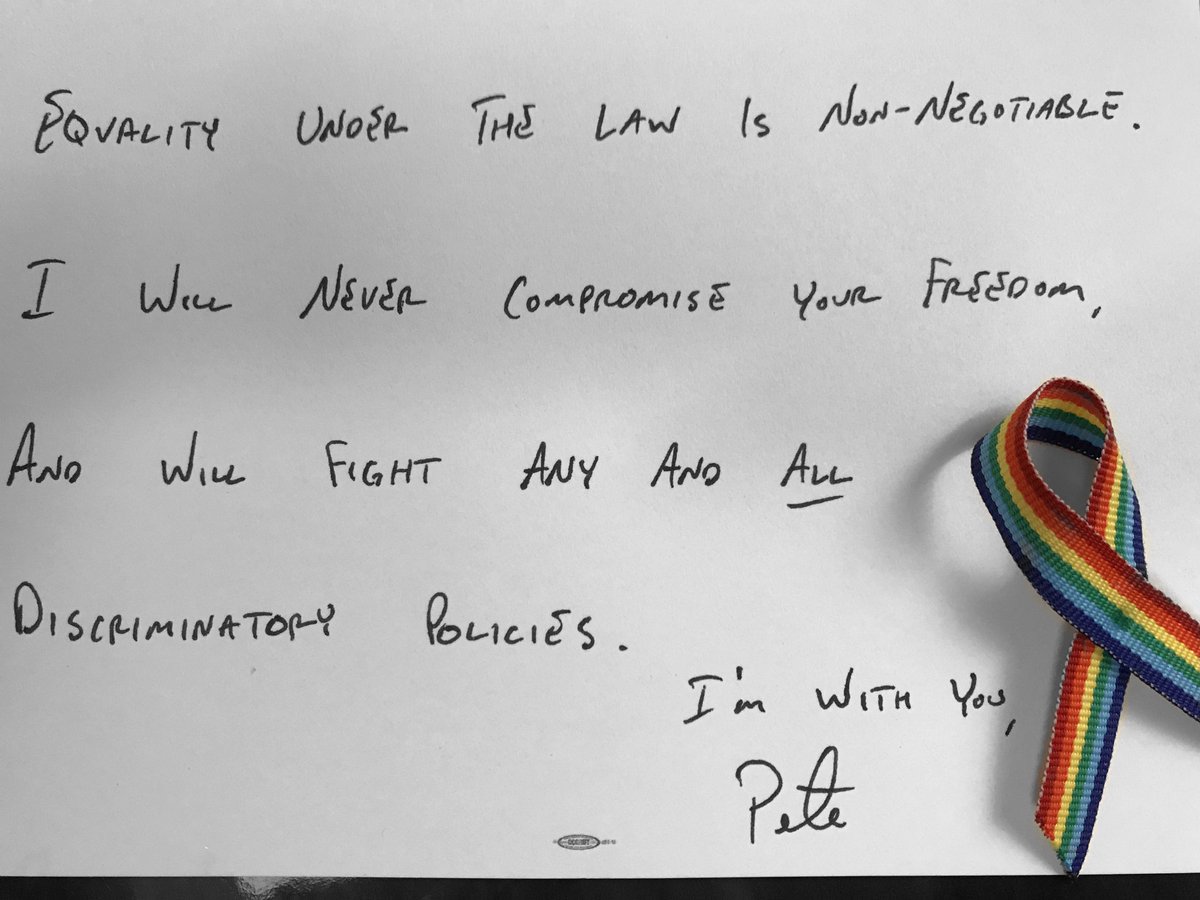 Equality Under The Law Is Non-Negotiable.
I Will Never Compromise Your Freedom,
And Will Fight Any And All
Discriminatory Policies.
I'm With You,
Pete